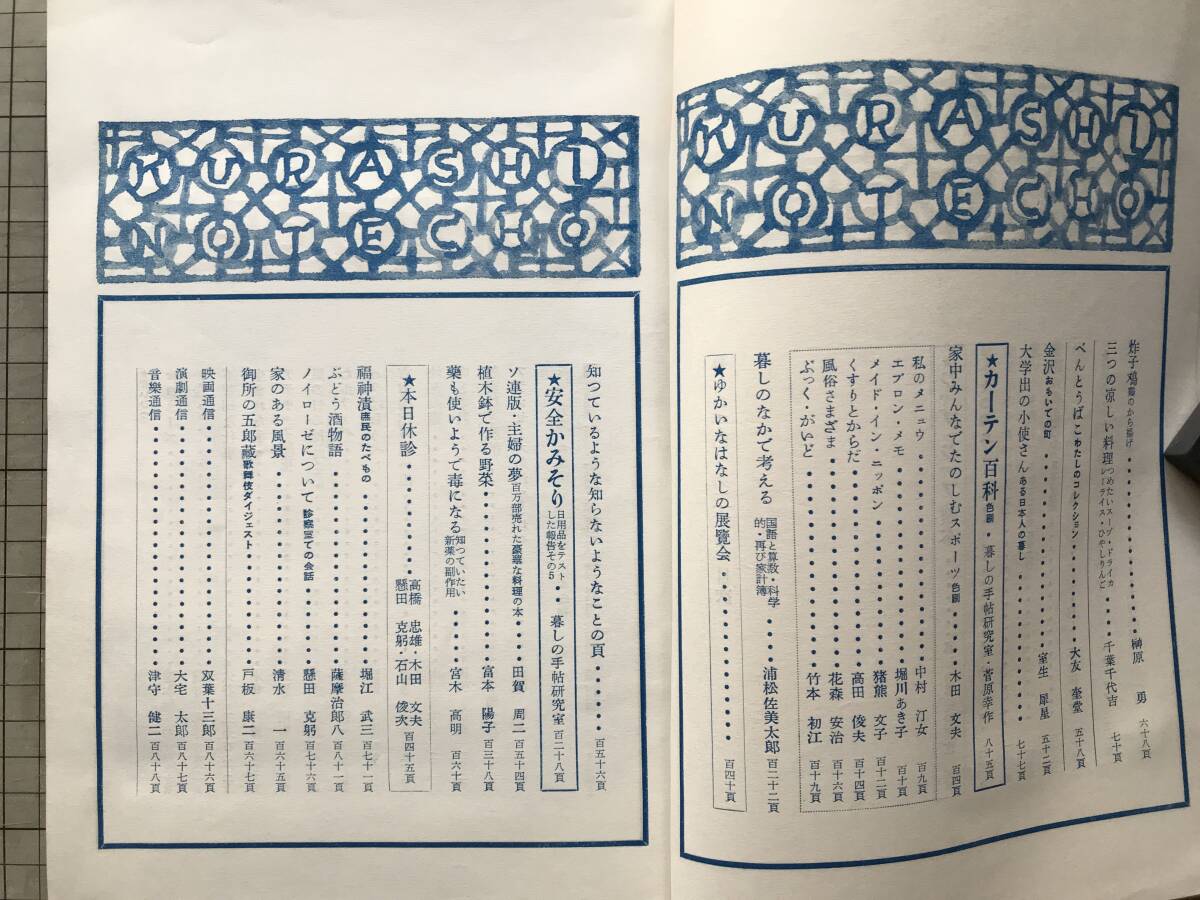 KURASHI
NOTECHO
炸子鶏 鶏のから揚げ・・・榊原 勇 六十八頁
三つの凉しい料理 つめたいスープ・ドライカレーライス・ひやしりんご・・・千葉千代吉 七十頁
べんとうばこ わたしのコレクション・・・大友 奎堂 五十八頁
金沢 おもいでの町・・・室生 犀星 五十二頁
大学出の小使さん ある日本人の暮し・・・七十七頁
★カーテン百科 色刷・・・暮しの手帖研究室・菅原幸作 八十五頁
家中みんなでたのしむスポーツ 色刷・・・木田 文夫 百四頁
私のメニュウ・・・中村 汀女 百九頁
エプロン・メモ・・・堀川あき子 百十頁
メイド・イン・ニッポン・・・猪熊 文子 百十二頁
くすりとからだ・・・高田 俊夫 百十四頁
風俗さまざま・・・花森 安治 百十六頁
ぶっく・がいど・・・竹本 初江 百十九頁
暮しのなかで考える 国語と算数・科学的・再び家計簿・・・浦松佐美太郎 百二十二頁
★ゆかいなはなしの展覧会・・・百四十頁
KURASHI
NOTECHO
知っているような知らないようなことの頁・・・百五十六頁
★安全かみそり 日用品をテストした報告その5・・暮しの手帖研究室 百二十八頁
ソ連版・主婦の夢 百万部売れた豪華な料理の本・・・田賀 周二 百五十四頁
植木鉢で作る野菜・・・富本 陽子 百三十八頁
藥も使いようで毒になる 知っていたい新薬の副作用・・・宮木 高明 百六十頁
★本日休診・・・高橋 忠雄・木田 文夫 懸田 克躬・石山 俊次 百四十五頁
福神漬 庶民のたべもの・・・堀江 武三 百七十一頁
ぶどう酒物語・・・薩摩治郎八 百八十一頁
ノイローゼについて 診察室での会話・・・懸田 克躬 百七十六頁
家のある風景・・・清水 一 百六十五頁
御所の五郎藏 歌舞伎ダイジェスト・・・戸板 康二 百六十七頁
映画通信・・・双葉十三郎 百八十六頁
演劇通信・・・大宅 太郎 百八十七頁
音樂通信・・・津守 健二 百八十八頁